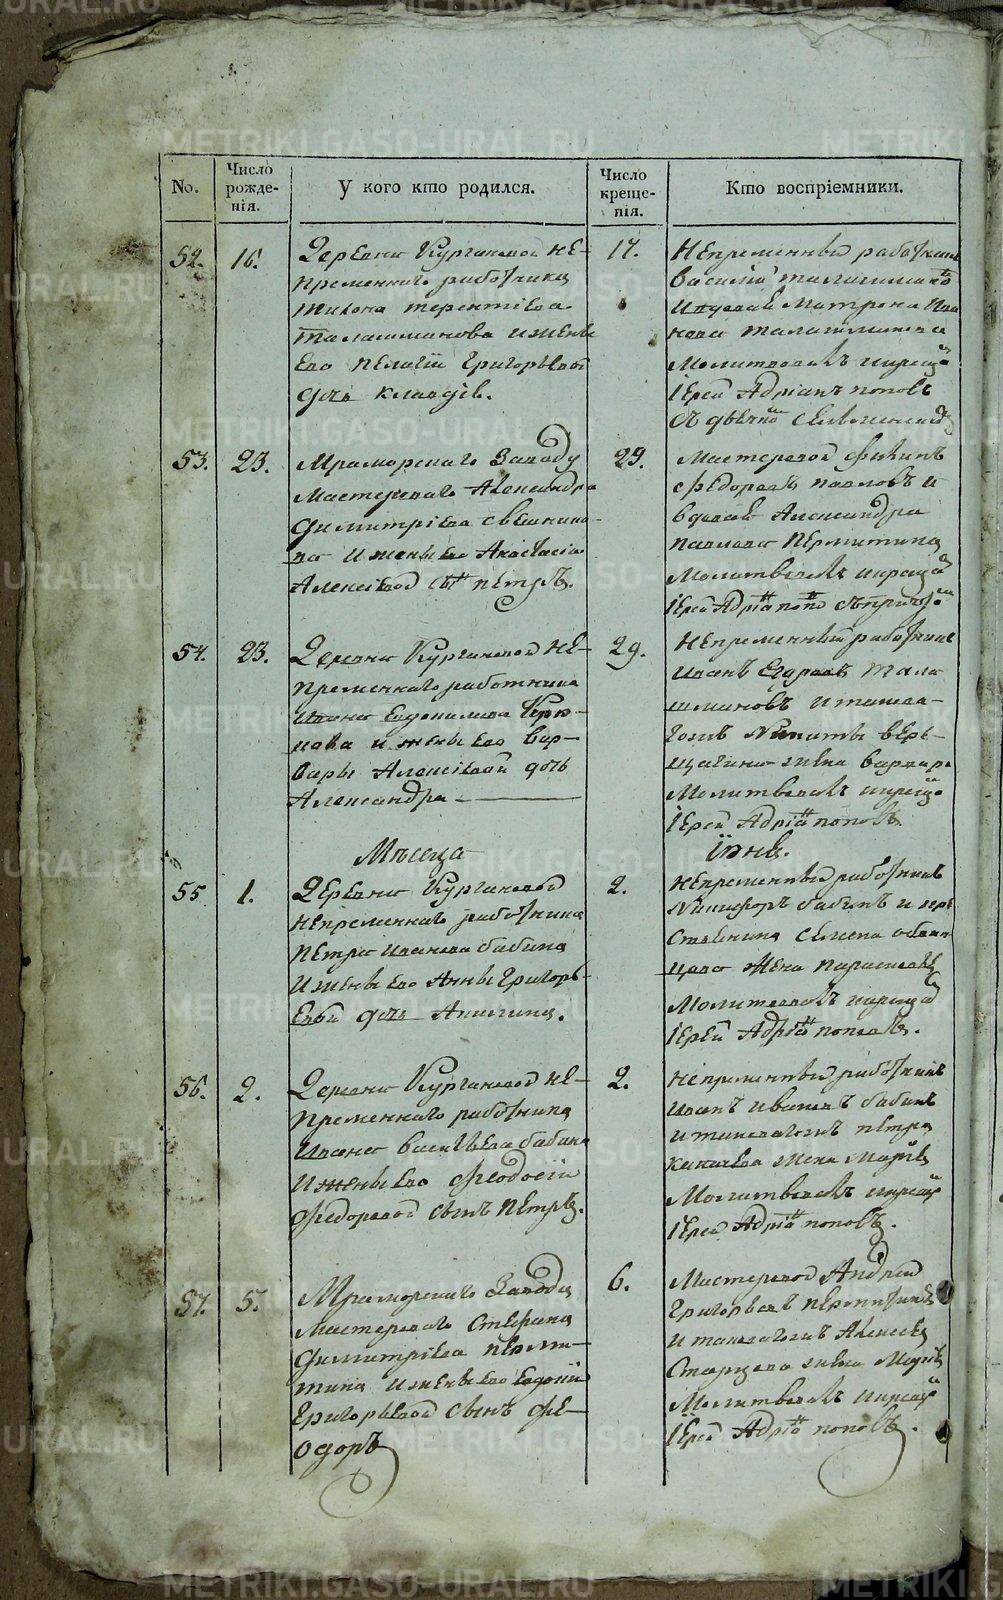 No.
Число рожде-
нія.
У кого кто родился.
Число креще-
нія.
Кто воспріемники.
52.
16.
Деревни Кургановой не-
пременнаго работника
Тихона Терентіева
Талашманова и жены
его Пелагіи Григорьевы
дочь Клавдія.
17.
Непременный работникъ
Василій Талашмано
и вдова Матрена Ива
нова Талашманова
Молитвовалъ и креща
Іерей Адріанъ Поповъ
53.
23.
Мраморскаго Заводу
Мастероваго Александра
Димитріева
и жены его Анастасіи
Алексіевой сынъ Петръ.
29.
Мастеровой Филипъ
Федоровъ Павловъ и
вдова Александра
Павлова Пермитина
Молитвовалъ и креща
Іерей Адріа Попо
54.
23.
Деревни Кургановой не-
пременнаго работника
Ивана Евдокимова
и жены его Вар-
вары Алексіевой дочь
Александра
29.
Непременный работник
Иванъ Егоровъ Тала
шмановъ и такова-
гожъ Никиты Вере-
щагина жена Варвара
Молитвовалъ и креща
Іерей Адріа Поповъ
Месяца
Іюня.
55
1.
Деревни Кургановой
непременнаго работника
Петра Иванова Бабина
и жены его Анны Григорь-
евой дочь Акилина.
2.
Непременный работникъ
Никифоръ Бабинъ и кре
стьянина Семена
жена Параскева
Молитвовалъ и креща
Іерей Адріа Поповъ.
56.
2.
Деревни Кургановой не-
пременнаго работника
Ивана Васильева Бабина
и жены его Феодосіи
Федоровой сынъ Петръ.
2.
Непременный работникъ
Иванъ Ивановъ Бабинъ
и таковагожъ Петра
жена Марія
Молитвовалъ и креща
Іерей Адріа Поповъ.
57.
5.
Мраморскаго Завода
Мастероваго Стефана
Димитріева Перми-
тина и жены его Евдокіи
Григорьевой сынъ Фе-
одоръ
6.
Мастеровой Андрей
Григорьевъ Пермитинъ
и таковагожъ Алексея
Старцева жена Марія
Молитвовалъ и креща
Іерей Адріа Поповъ.
METRIKI.GASO-URAL.RU